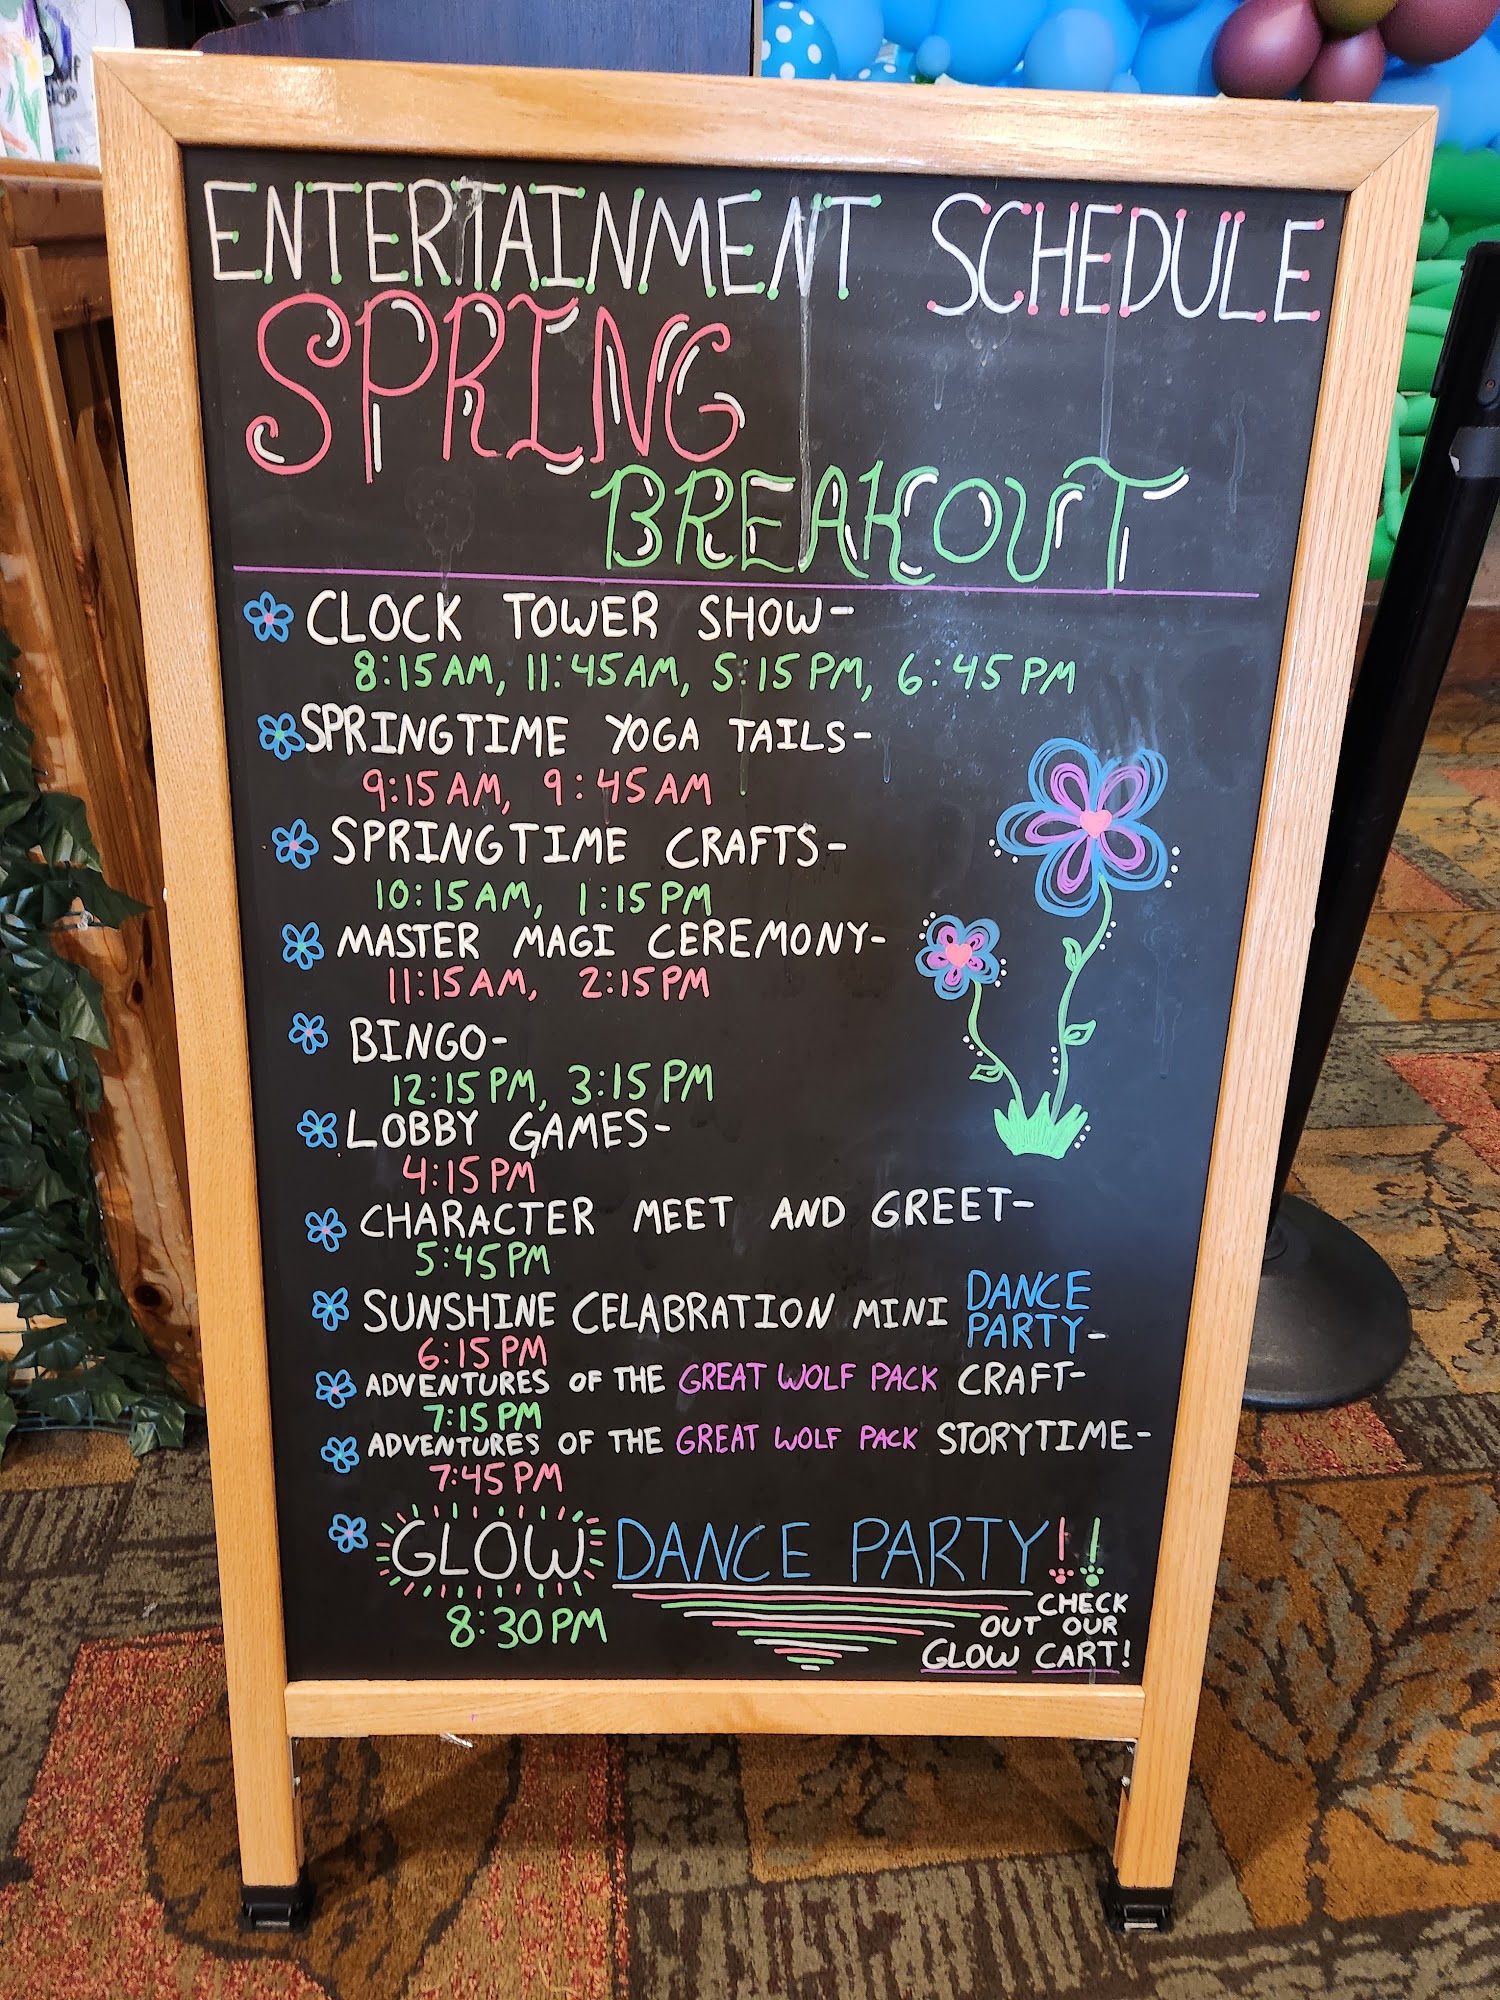 ENTERTAINMENT SCHEDULE
SPRING
BREAKOUT
CLOCK TOWER SHOW-
8:15AM, 11:45AM, 5:15PM, 6:45PM
SPRINGTIME YOGA TAILS-
9:15AM, 9:45AM
SPRINGTIME CRAFTS-
10:15AM, 1:15PM
MASTER MAGI CEREMONY-
11:15AM, 2:15PM
BINGO-
12:15PM, 3:15PM
LOBBY GAMES-
4:15PM
CHARACTER MEET AND GREET-
5:45PM
SUNSHINE CELABRATION MINI DANCE PARTY-
6:15PM
ADVENTURES OF THE GREAT WOLF PACK CRAFT-
7:15PM
ADVENTURES OF THE GREAT WOLF PACK STORYTIME-
7:45PM
GLOW DANCE PARTY!!
8:30PM
CHECK
OUT OUR
GLOW CART!